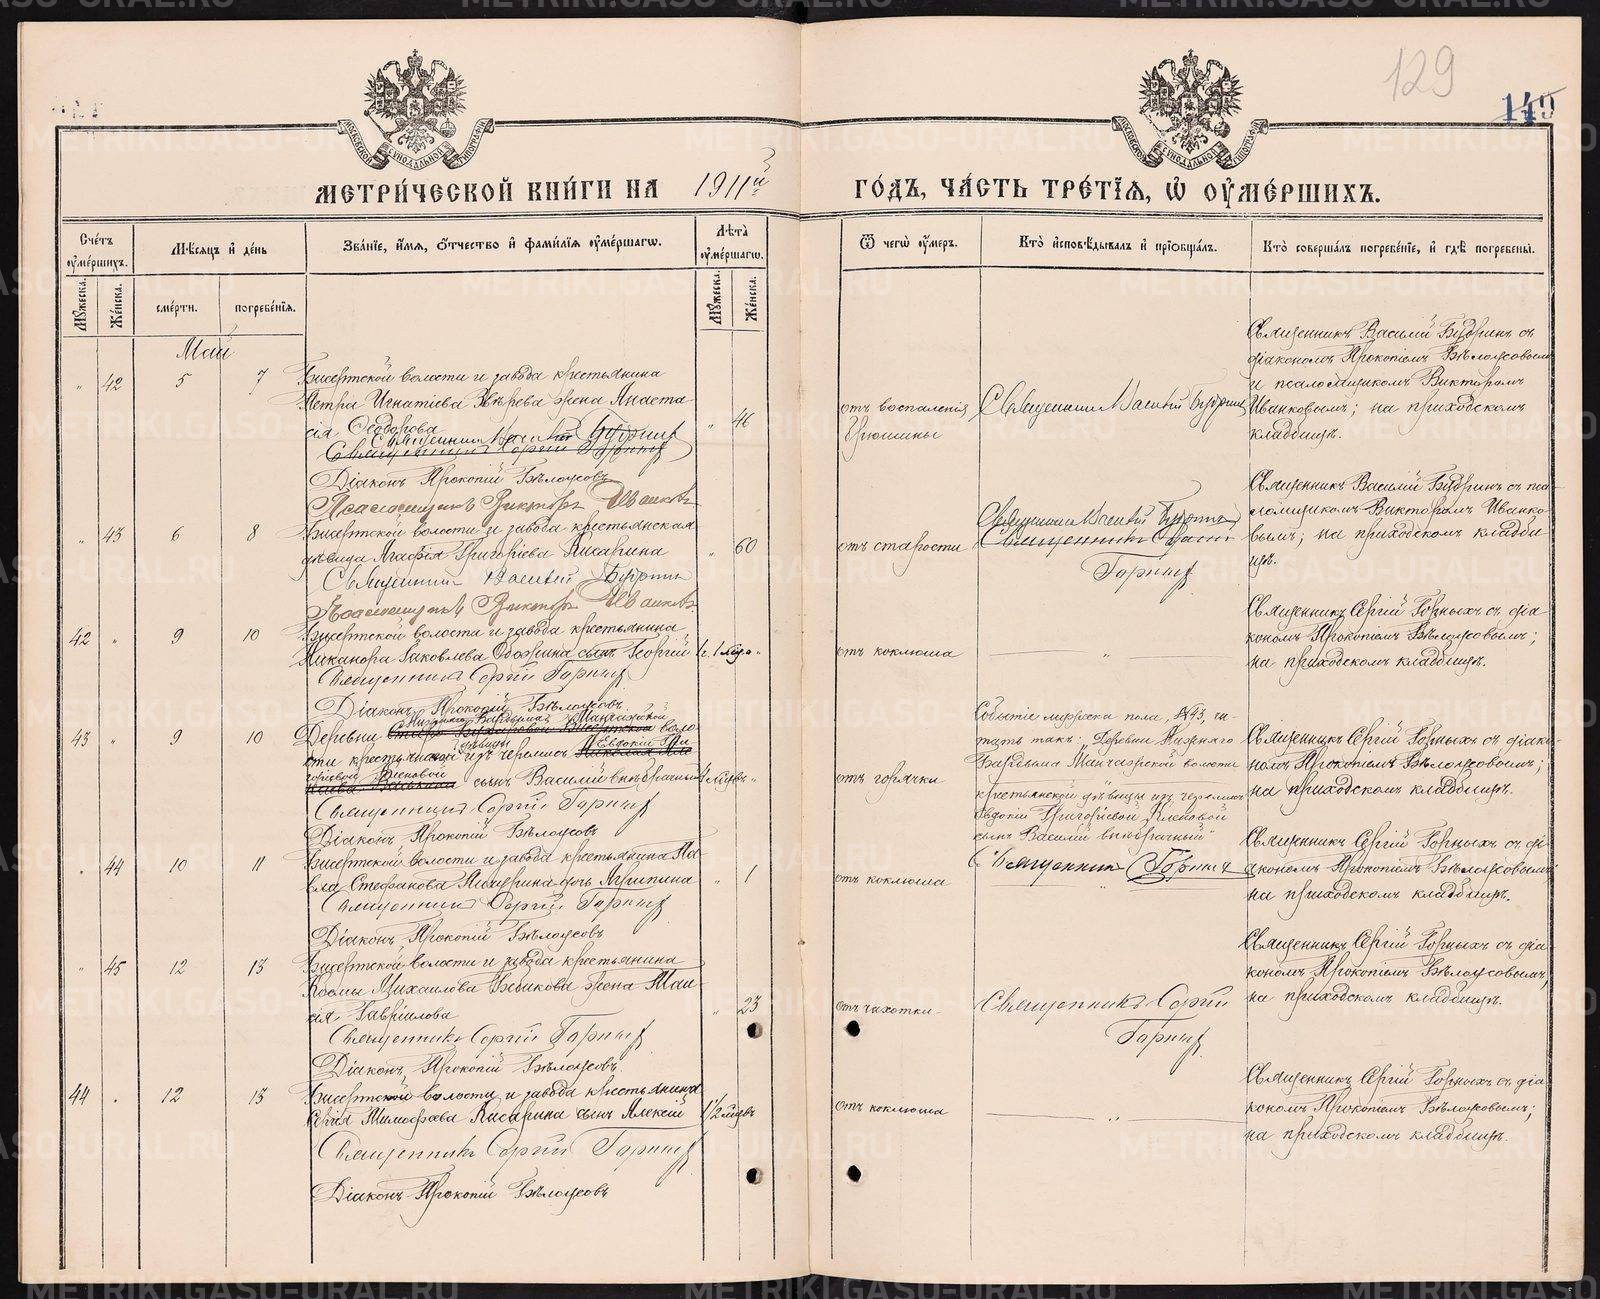 129
149
МЕТРИЧЕСКОЙ КНИГИ НА 1911й ГОДЪ, ЧАСТЬ ТРЕТІЯ, Ѡ ОУМЕРШИХЪ.
Счетъ оумершихъ.
Мѣсяцъ и день
Званіе, имя, отчество и фамилія оумершагѡ.
Лѣта оумершагѡ.
Ѿ чегѡ оумеръ.
Кто исповѣдывалъ и пріобщалъ.
Кто совершалъ погребеніе, и гдѣ погребены.
Мужеска.
Женска.
смерти.
погребенія.
Мужеска.
Женска.
Май
" 42 5 7
Бисертской волости и завода крестьянина
Петра Игнатіева Звѣрева жена Анаста
сія Ѳеодорова
" 46
Священникъ Василій Будринъ
Священникъ Сергій Горныхъ
Діаконъ Прокопій Бѣлоусовъ
Псаломщикъ Викторъ Иванковъ
отъ воспаленія
брюшины
Священникъ Василій Будринъ
Священникъ Василій Будринъ съ
діакономъ Прокопіемъ Бѣлоусовымъ
и псаломщикомъ Викторомъ
Иванковымъ; на приходскомъ
кладбищѣ.
" 43 6 8
Бисертской волости и завода крестьянская
дѣвица Агафія Григоріева Писарина
" 60
Священникъ Василій Будринъ
Псаломщикъ Викторъ Иванковъ
отъ старости
Священникъ Василій Будринъ
Священникъ Сергій
Горныхъ
Священникъ Василій Будринъ съ пса
ломщикомъ Викторомъ Иванко
вымъ; на приходскомъ кладби
щѣ.
42 " 9 10
Бисертской волости и завода крестьянина
Никанора Іаковлева сынъ Георгій
Священникъ Сергій Горныхъ
Діаконъ Прокопій Бѣлоусовъ
отъ коклюша
"
Священникъ Сергій Горныхъ съ діа
кономъ Прокопіемъ Бѣлоусовымъ;
на приходскомъ кладбищѣ.
43 " 9 10
Нижняго Бардыма Манчажской
Деревни воло
сти крестьянской дѣвицы изъ черемисъ Евдокіи Гри
горіевой сынъ Василій внѣбрачный
Священникъ Сергій Горныхъ
Діаконъ Прокопій Бѣлоусовъ
отъ горячки
Событіе мужеска пола, №43, чи-
тать такъ: "Деревни Нижняго
Бардыма Манчажской волости
крестьянской дѣвицы изъ черемисъ
Евдокіи Григоріевой
сынъ Василій внѣбрачный"
Священникъ Горныхъ
Священникъ Сергій Горныхъ съ діако
номъ Прокопіемъ Бѣлоусовымъ;
на приходскомъ кладбищѣ.
" 44 10 11
Бисертской волости и завода крестьянина Па
вла Стефанова дочь Агрипина
" 1
Священникъ Сергій Горныхъ
Діаконъ Прокопій Бѣлоусовъ
отъ коклюша
"
Священникъ Сергій Горныхъ съ ді
акономъ Прокопіемъ Бѣлоусовымъ
на приходскомъ кладбищѣ.
" 45 12 13
Бисертской волости и завода крестьянина
Космы Михаилова жена Таи
сія Гавріилова
" 23
Священникъ Сергій Горныхъ
Діаконъ Прокопій Бѣлоусовъ.
отъ чахотки
Священникъ Сергій
Горныхъ
Священникъ Сергій Горныхъ съ діа
кономъ Прокопіемъ Бѣлоусовымъ,
на приходскомъ кладбищѣ.
44 " 12 13
Бисертской волости и завода крестьянина
Сергія Тимоѳеева Писарина сынъ Алексій
Священникъ Сергій Горныхъ
Діаконъ Прокопій Бѣлоусовъ
отъ коклюша
"
Священникъ Сергій Горныхъ съ діа
кономъ Прокопіемъ Бѣлоусовымъ;
на приходскомъ кладбищѣ.
METRIKI.GASO-URAL.RU